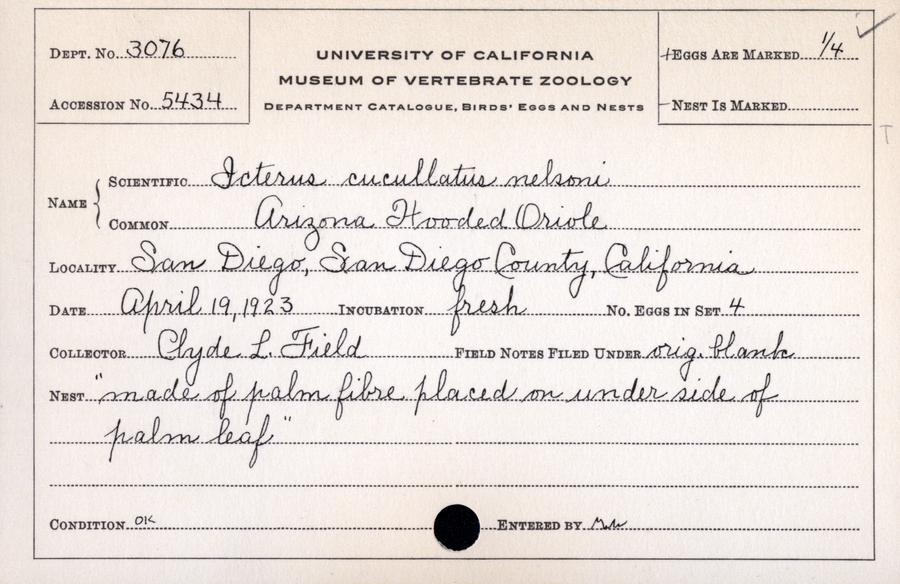 DEPT. NO. 3076
ACCESSION NO. 5434
UNIVERSITY OF CALIFORNIA
MUSEUM OF VERTEBRATE ZOOLOGY
DEPARTMENT CATALOGUE, BIRDS' EGGS AND NESTS
EGGS ARE MARKED 1/4
NEST IS MARKED
NAME
SCIENTIFIC Icterus cucullatus nelsoni
COMMON Arizona Hooded Oriole
LOCALITY San Diego, San Diego County, California
DATE April 19, 1923 INCUBATION fresh NO. EGGS IN SET 4
COLLECTOR Clyde L. Field FIELD NOTES FILED UNDER orig. blank
NEST "made of palm fibre placed on under side of
palm leaf"
CONDITION OK ENTERED BY